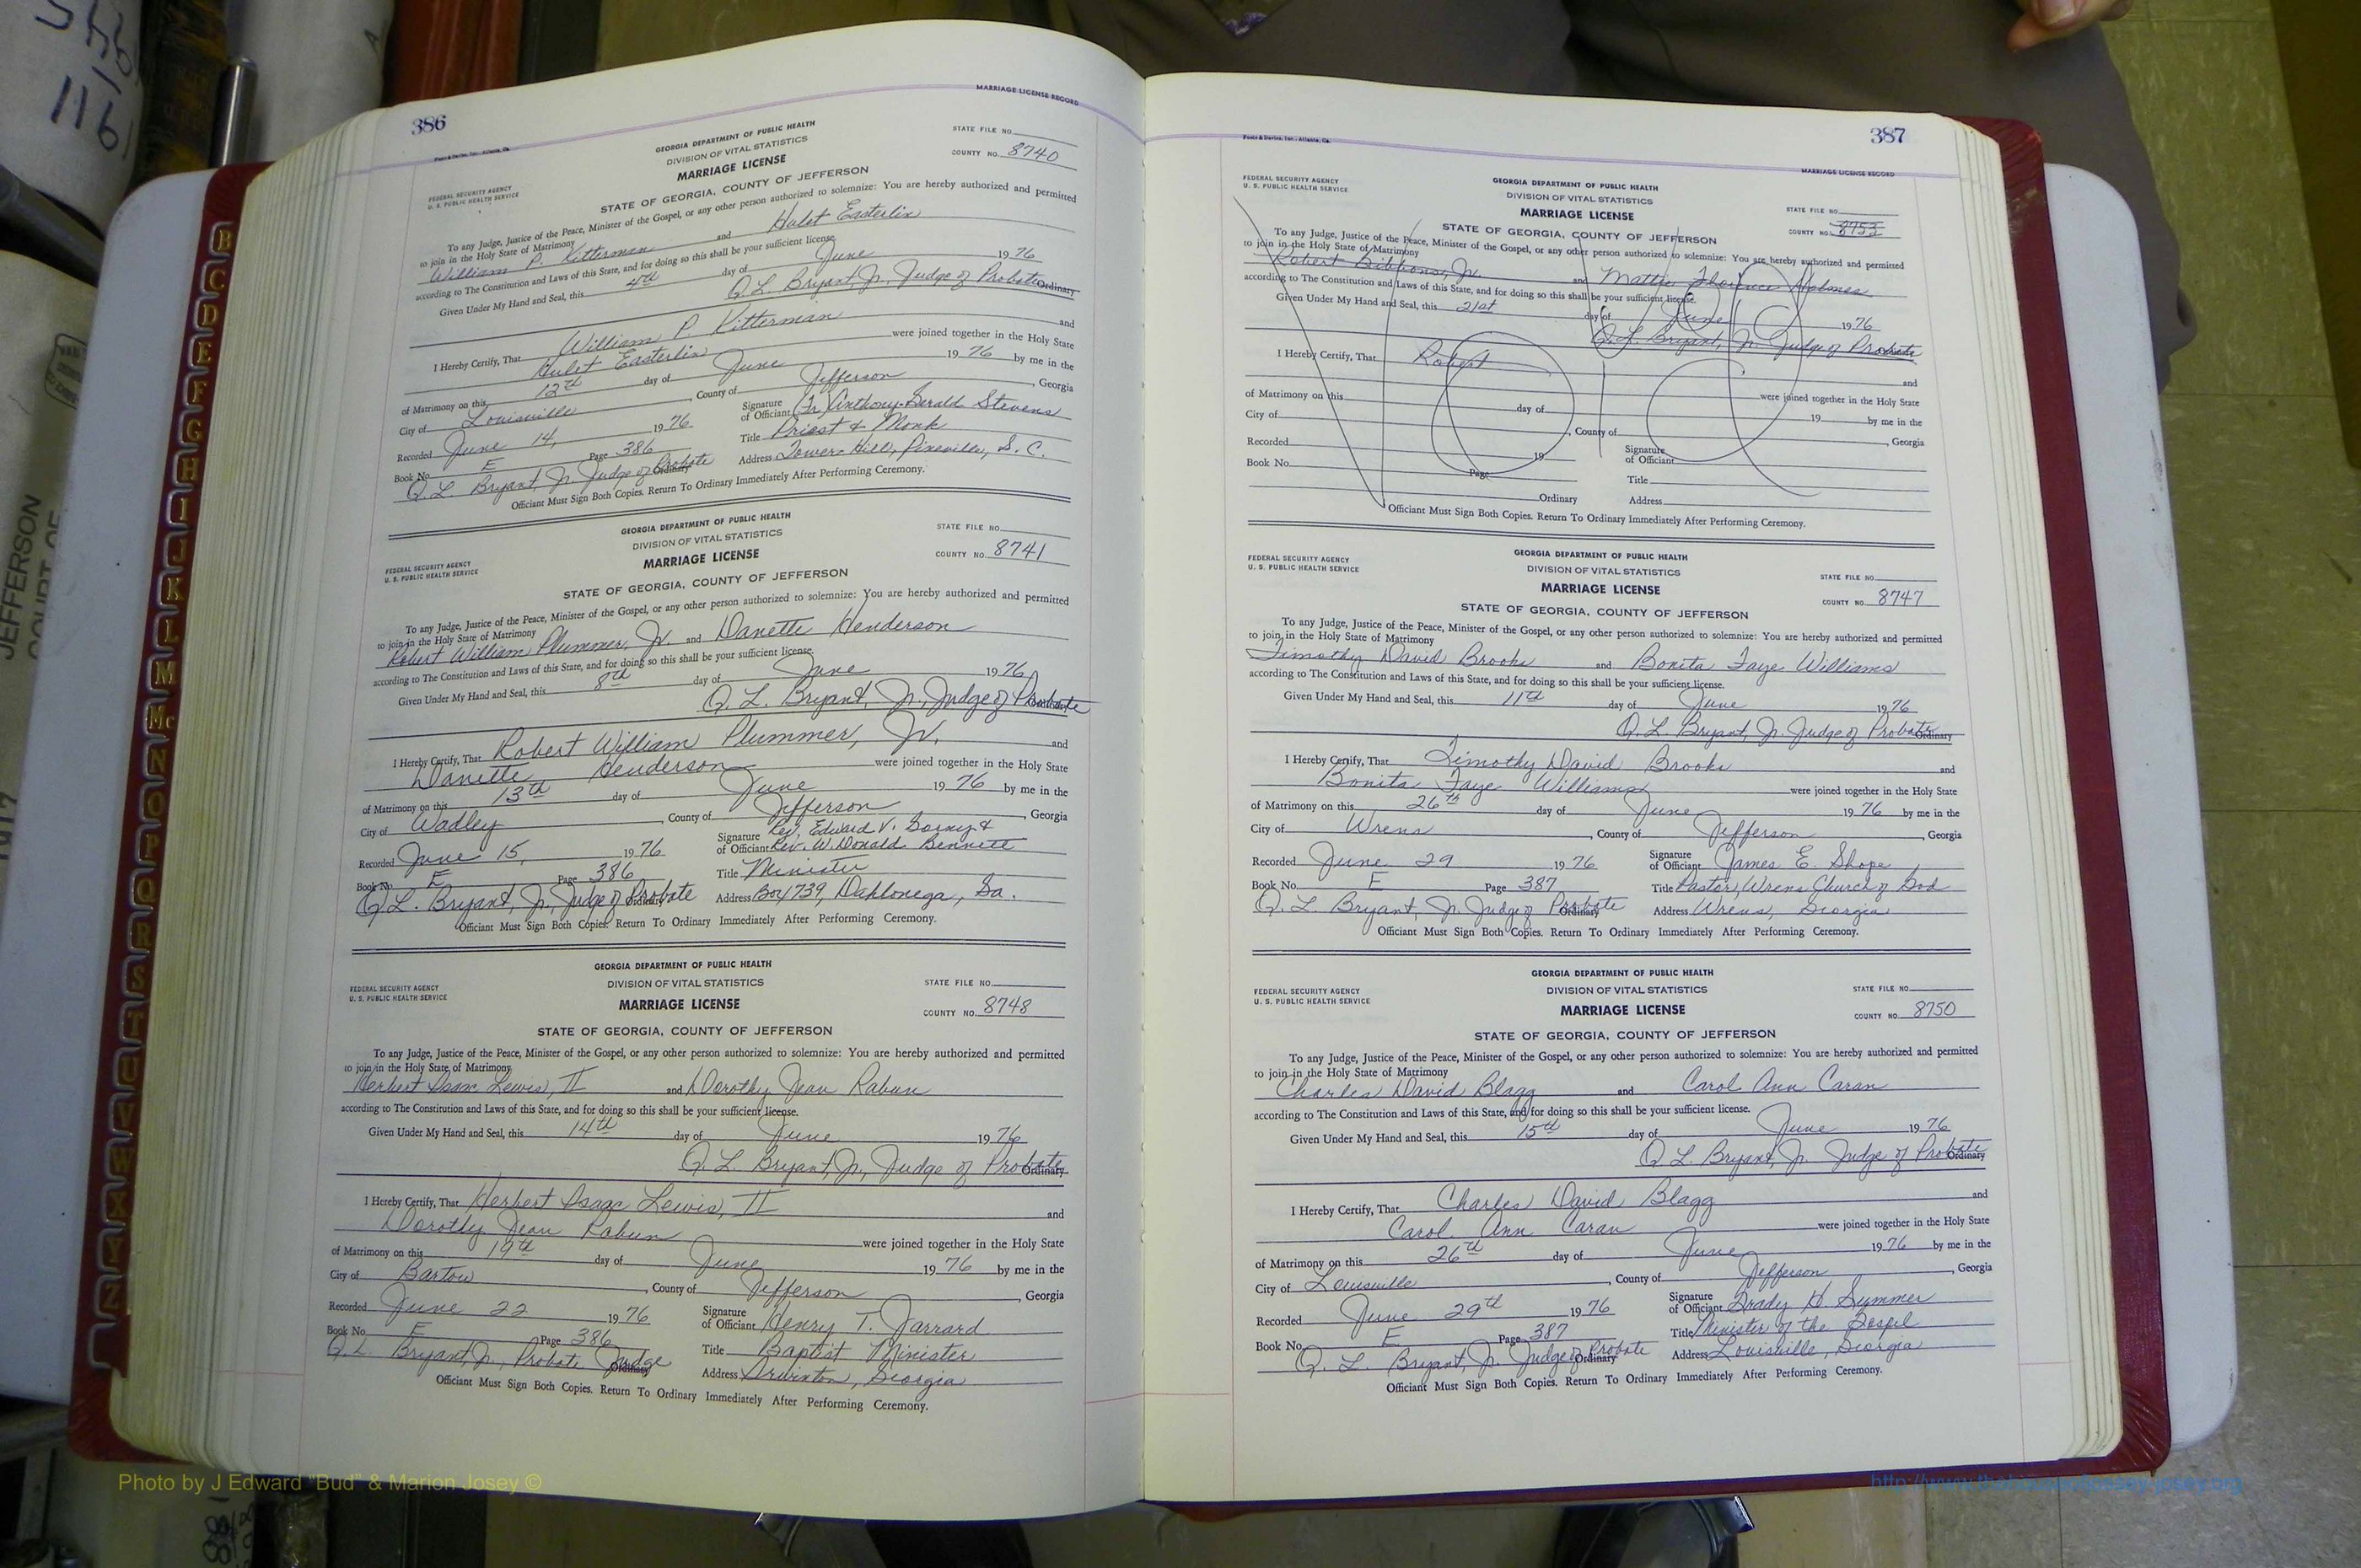 386
MARRIAGE LICENSE RECORD
Foote & Davies, Inc., Atlanta, Ga.
GEORGIA DEPARTMENT OF PUBLIC HEALTH
DIVISION OF VITAL STATISTICS
MARRIAGE LICENSE
STATE FILE NO.
COUNTY NO. 8740
FEDERAL SECURITY AGENCY
U. S. PUBLIC HEALTH SERVICE
STATE OF GEORGIA, COUNTY OF JEFFERSON
To any Judge, Justice of the Peace, Minister of the Gospel, or any other person authorized to solemnize: You are hereby authorized and permitted
to join in the Holy State of Matrimony
William P. Kitterman and Hulet Easterlin
according to The Constitution and Laws of this State, and for doing so this shall be your sufficient license.
Given Under My Hand and Seal, this 4th day of June 1976
Q. L. Bryant, Jr. Judge of Probate Ordinary
I Hereby Certify, That William P. Kitterman and
Hulet Easterlin were joined together in the Holy State
of Matrimony on this 12th day of June 1976 by me in the
City of Louisville, County of Jefferson, Georgia
Recorded June 14, 1976 Signature of Officiant (Fr.) Anthony-Gerald Stevens
Book No. E Page 386 Title Priest & Monk
Q. L. Bryant, Jr. Judge of Probate Ordinary Address Tower Hill, Pineville, S. C.
Officiant Must Sign Both Copies. Return To Ordinary Immediately After Performing Ceremony.
GEORGIA DEPARTMENT OF PUBLIC HEALTH
DIVISION OF VITAL STATISTICS
MARRIAGE LICENSE
STATE FILE NO.
COUNTY NO. 8741
FEDERAL SECURITY AGENCY
U. S. PUBLIC HEALTH SERVICE
STATE OF GEORGIA, COUNTY OF JEFFERSON
To any Judge, Justice of the Peace, Minister of the Gospel, or any other person authorized to solemnize: You are hereby authorized and permitted
to join in the Holy State of Matrimony
Robert William Plummer, Jr. and Danette Henderson
according to The Constitution and Laws of this State, and for doing so this shall be your sufficient license.
Given Under My Hand and Seal, this 8th day of June 1976
Q. L. Bryant, Jr., Judge of Probate
I Hereby Certify, That Robert William Plummer, Jr. and
Danette Henderson were joined together in the Holy State
of Matrimony on this 13th day of June 1976 by me in the
City of Wadley, County of Jefferson, Georgia
Recorded June 15, 1976 Signature of Officiant Rev. Edward V. & Rev. W. Donald Bennett
Book No. E Page 386 Title Minister
Q. L. Bryant, Jr., Judge of Probate Ordinary Address Box 739, Dahlonega, Ga.
Officiant Must Sign Both Copies. Return To Ordinary Immediately After Performing Ceremony.
GEORGIA DEPARTMENT OF PUBLIC HEALTH
DIVISION OF VITAL STATISTICS
MARRIAGE LICENSE
STATE FILE NO.
COUNTY NO. 8748
FEDERAL SECURITY AGENCY
U. S. PUBLIC HEALTH SERVICE
STATE OF GEORGIA, COUNTY OF JEFFERSON
To any Judge, Justice of the Peace, Minister of the Gospel, or any other person authorized to solemnize: You are hereby authorized and permitted
to join in the Holy State of Matrimony
Herbert Isaac Lewis, II and Dorothy Jean Rabun
according to The Constitution and Laws of this State, and for doing so this shall be your sufficient license.
Given Under My Hand and Seal, this 14th day of June 1976
Q. L. Bryant, Jr., Judge of Probate Ordinary
I Hereby Certify, That Herbert Isaac Lewis, II and
Dorothy Jean Rabun were joined together in the Holy State
of Matrimony on this 19th day of June 1976 by me in the
City of Bartow, County of Jefferson, Georgia
Recorded June 22 1976 Signature of Officiant Henry T. Jarrard
Book No. E Page 386 Title Baptist Minister
Q. L. Bryant, Jr., Probate Judge Ordinary Address Irwinton, Georgia
Officiant Must Sign Both Copies. Return To Ordinary Immediately After Performing Ceremony.
387
Foote & Davies, Inc., Atlanta, Ga.
MARRIAGE LICENSE RECORD
FEDERAL SECURITY AGENCY
U. S. PUBLIC HEALTH SERVICE
GEORGIA DEPARTMENT OF PUBLIC HEALTH
DIVISION OF VITAL STATISTICS
MARRIAGE LICENSE
STATE FILE NO.
COUNTY NO. 8753
STATE OF GEORGIA, COUNTY OF JEFFERSON
To any Judge, Justice of the Peace, Minister of the Gospel, or any other person authorized to solemnize: You are hereby authorized and permitted
to join in the Holy State of Matrimony
Robert Gibbons, Jr. and Mattie Florence Holmes
according to The Constitution and Laws of this State, and for doing so this shall be your sufficient license.
Given Under My Hand and Seal, this 21st day of June 1976
Q. L. Bryant, Jr. Judge of Probate
I Hereby Certify, That Robert and
were joined together in the Holy State
of Matrimony on this day of 19 by me in the
City of , County of , Georgia
Recorded 19 Signature of Officiant
Book No. Page Title
Ordinary Address
Officiant Must Sign Both Copies. Return To Ordinary Immediately After Performing Ceremony.
VOID
FEDERAL SECURITY AGENCY
U. S. PUBLIC HEALTH SERVICE
GEORGIA DEPARTMENT OF PUBLIC HEALTH
DIVISION OF VITAL STATISTICS
MARRIAGE LICENSE
STATE FILE NO.
COUNTY NO. 8747
STATE OF GEORGIA, COUNTY OF JEFFERSON
To any Judge, Justice of the Peace, Minister of the Gospel, or any other person authorized to solemnize: You are hereby authorized and permitted
to join in the Holy State of Matrimony
Timothy David Brooks and Bonita Faye Williams
according to The Constitution and Laws of this State, and for doing so this shall be your sufficient license.
Given Under My Hand and Seal, this 11th day of June 1976
Q. L. Bryant, Jr. Judge of Probate Ordinary
I Hereby Certify, That Timothy David Brooks and
Bonita Faye Williams were joined together in the Holy State
of Matrimony on this 26th day of June 1976 by me in the
City of Wrens, County of Jefferson, Georgia
Recorded June 29 1976 Signature of Officiant James E. Shope
Book No. E Page 387 Title Pastor, Wrens Church of God
Q. L. Bryant, Jr. Judge of Probate Ordinary Address Wrens, Georgia
Officiant Must Sign Both Copies. Return To Ordinary Immediately After Performing Ceremony.
FEDERAL SECURITY AGENCY
U. S. PUBLIC HEALTH SERVICE
GEORGIA DEPARTMENT OF PUBLIC HEALTH
DIVISION OF VITAL STATISTICS
MARRIAGE LICENSE
STATE FILE NO.
COUNTY NO. 8750
STATE OF GEORGIA, COUNTY OF JEFFERSON
To any Judge, Justice of the Peace, Minister of the Gospel, or any other person authorized to solemnize: You are hereby authorized and permitted
to join in the Holy State of Matrimony
Charles David Blagg and Carol Ann Caran
according to The Constitution and Laws of this State, and for doing so this shall be your sufficient license.
Given Under My Hand and Seal, this 15th day of June 1976
Q. L. Bryant, Jr. Judge of Probate Ordinary
I Hereby Certify, That Charles David Blagg and
Carol Ann Caran were joined together in the Holy State
of Matrimony on this 26th day of June 1976 by me in the
City of Louisville, County of Jefferson, Georgia
Recorded June 29th 1976 Signature of Officiant Grady H. Summer
Book No. E Page 387 Title Minister of the Gospel
Q. L. Bryant, Jr. Judge of Probate Ordinary Address Louisville, Georgia
Officiant Must Sign Both Copies. Return To Ordinary Immediately After Performing Ceremony.
B
C
D
E
F
G
H
I
J
K
L
M
Mc
N
O
P
Q
R
S
T
U
V
W
X
Y
Z
JEFFERSON
COURT OF
Photo by J Edward "Bud" & Marion Josey ©